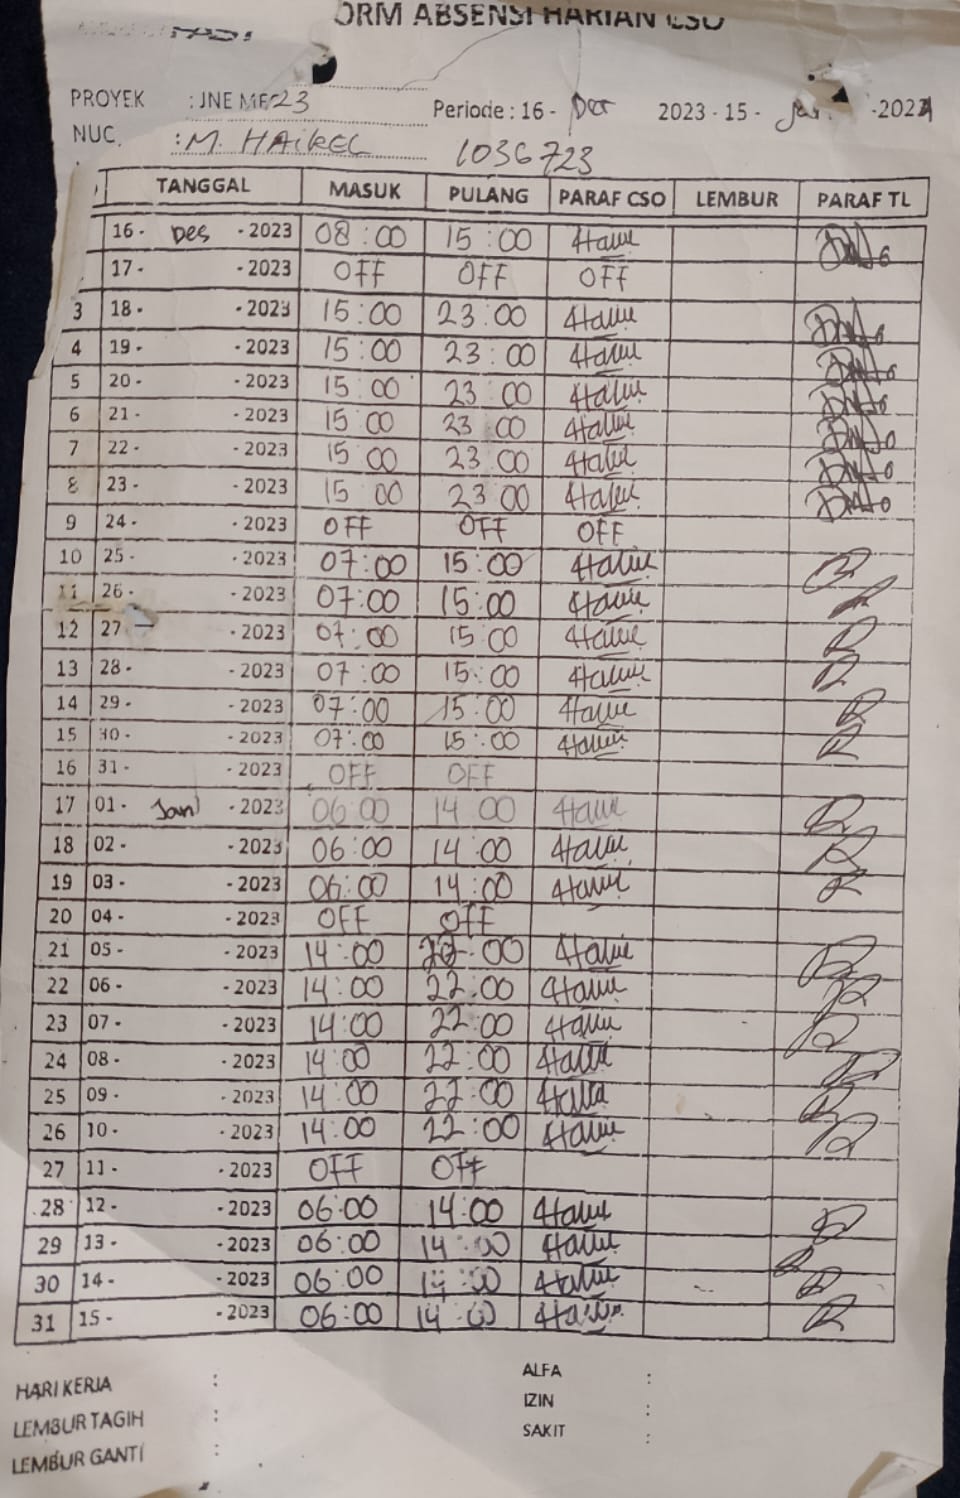 ORM ABSENSI HARIAN CSO
PROYEK : JNE ME23 Periode : 16 - Des 2023 - 15 - Jan -2024
NUC. : M. HAIKEL 1036723
TANGGAL MASUK PULANG PARAF CSO LEMBUR PARAF TL
16 - Des - 2023 08:00 15:00
17 - - 2023 OFF OFF OFF
3 18 - - 2023 15:00 23:00
4 19 - - 2023 15:00 23:00
5 20 - - 2023 15:00 23 00
6 21 - - 2023 15 00 23 00
7 22 - - 2023 15 00 23 00
8 23 - - 2023 15 00 23 00
9 24 - - 2023 OFF OFF OFF
10 25 - - 2023 07:00 15:00
11 26 - - 2023 07:00 15:00
12 27 - - 2023 07:00 15:00
13 28 - - 2023 07:00 15:00
14 29 - - 2023 07:00 15:00
15 30 - - 2023 07:00 15:00
16 31 - - 2023 OFF OFF
17 01 - Jan - 2023 06:00 14 00
18 02 - - 2023 06:00 14:00
19 03 - - 2023 06:00 14:00
20 04 - - 2023 OFF OFF
21 05 - - 2023 14:00 :00
22 06 - - 2023 14:00 22:00
23 07 - - 2023 14:00 22:00
24 08 - - 2023 14:00 22:00
25 09 - - 2023 14:00 22:00
26 10 - - 2023 14:00 22:00
27 11 - - 2023 OFF OFF
28 12 - - 2023 06:00 14:00
29 13 - - 2023 06:00 14:00
30 14 - - 2023 06:00 14:00
31 15 - - 2023 06:00 14:00
HARI KERJA : ALFA :
LEMBUR TAGIH : IZIN :
LEMBUR GANTI : SAKIT :